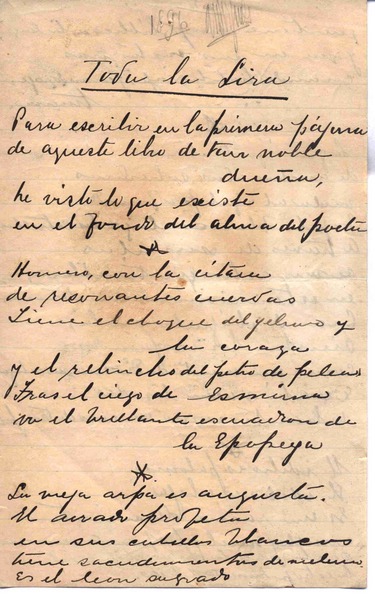 Toda la Lira
Para escribir en la primera página
de aqueste libro de tan noble
dueña,
he visto lo que existe
en el fondo del alma del poeta
*
Homero, con la cítara
de resonantes cuerdas
tiene el choque del yelmo y
la coraza
y el relincho del potro de pelea
Tras el ciego de Esmirna
va el brillante escuadron de
la Epopeya
*
La vieja arpa es augusta.
El airado profeta
en sus cabellos blancos
tiene sacudimientos de melena.
Es el leon sagrado